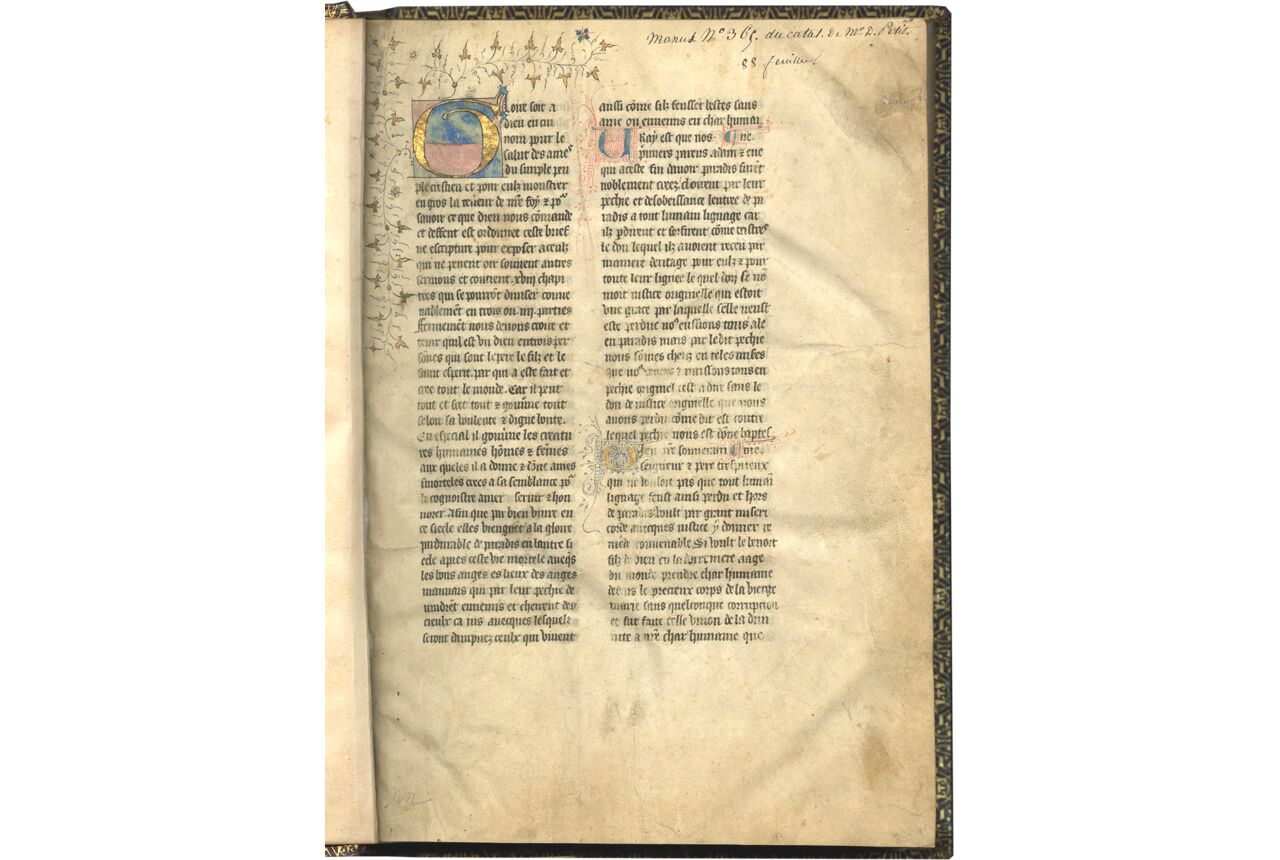 Manus. N° 365. du catal. de Mr D. Petit.
88 feuilles.
Gloire soit a
dieu en cui
nom pour le
salut des ames
du simple peu
ple crestien et pour eulz monstrer
en gros la teneur de nr̄e foy ⁊ po᷑
sauoir ce que dieu nous cōmande
et deffent est ordonnee ceste brief
ue escripture pour exposer a ceulz
qui ne peuent oir souuent autres
sermons et contient .xviii. chapi
tres qui se pourrōt diuiser conue
nablemēt en trois ou iiii. parties
Fermement nous deuons croire et
tenir quil est vn dieu en trois per
sōnes qui sont le pere le filz et le
saint esperit. par qui a este fait et
cree tout le monde. Car il peut
tout et scet tout ⁊ gouūne tout
selon sa voulente ⁊ digne bonte.
En especial il gouūne les creatu
res humaines hōmes ⁊ fēmes
aux queles il a donne ⁊ dōne ames
īmorteles crees a sa semblance po᷑
le cognoistre amer seruir ⁊ hon
norer. Afin que par bien viure en
ce siecle elles viengnēt a la gloire
pardurable de paradis en lautre si
ecle apres ceste vie mortele auecq̄s
les bons anges es lieux des anges
mauuais qui par leur pechie de
uindrēt ennemis et cheurent des
cieulx ca ius auecques lesquelz
seront dampnez ceulx qui viuent
aussi cōme silz feussent bestes sans
ame ou ennemis en char humai
ne.
Uray est que nos
p̄miers parens adam ⁊ eue
qui a ceste fin dauoir paradis furēt
noblement creez cloirent par leur
pechie et desobeissance lentree de pa
radis a tout humain lignage car
ilz p̄dirent et forfirent cōme tristres
le don lequel ilz auoient receu par
maniere deritage pour eulz ⁊ pour
toute leur lignee le quel don se nō
moit iustice originelle qui estoit
vne grace par laquelle selle neust
este perdue no᷒ eussions tous ale
en paradis mais par le dit pechie
nous sōmes cheuz en teles miseres
que no᷒ naissons tous en
pechie originel cest a dire sans le
don de iustice originelle que nous
auons perdu cōme dit est contre
lequel pechie nous est dōne baptes
me.
Dieu nr̄e souuerain
seigneur ⁊ pere tres piteux
qui ne vouloit pas que tout humaī
lignage feust ainsi perdu et hors
de paradis voult par grant miseri
corde auecques iustice y donner re
mede conuenable. Si voult le benoit
filz de dieu en la derreniere aage
du monde prendre char humaine
dedens le precieux corps de la vierge
marie sans quelconque corrupcion
et fut faite celle vnion de la diui
nite a nr̄e char humaine que